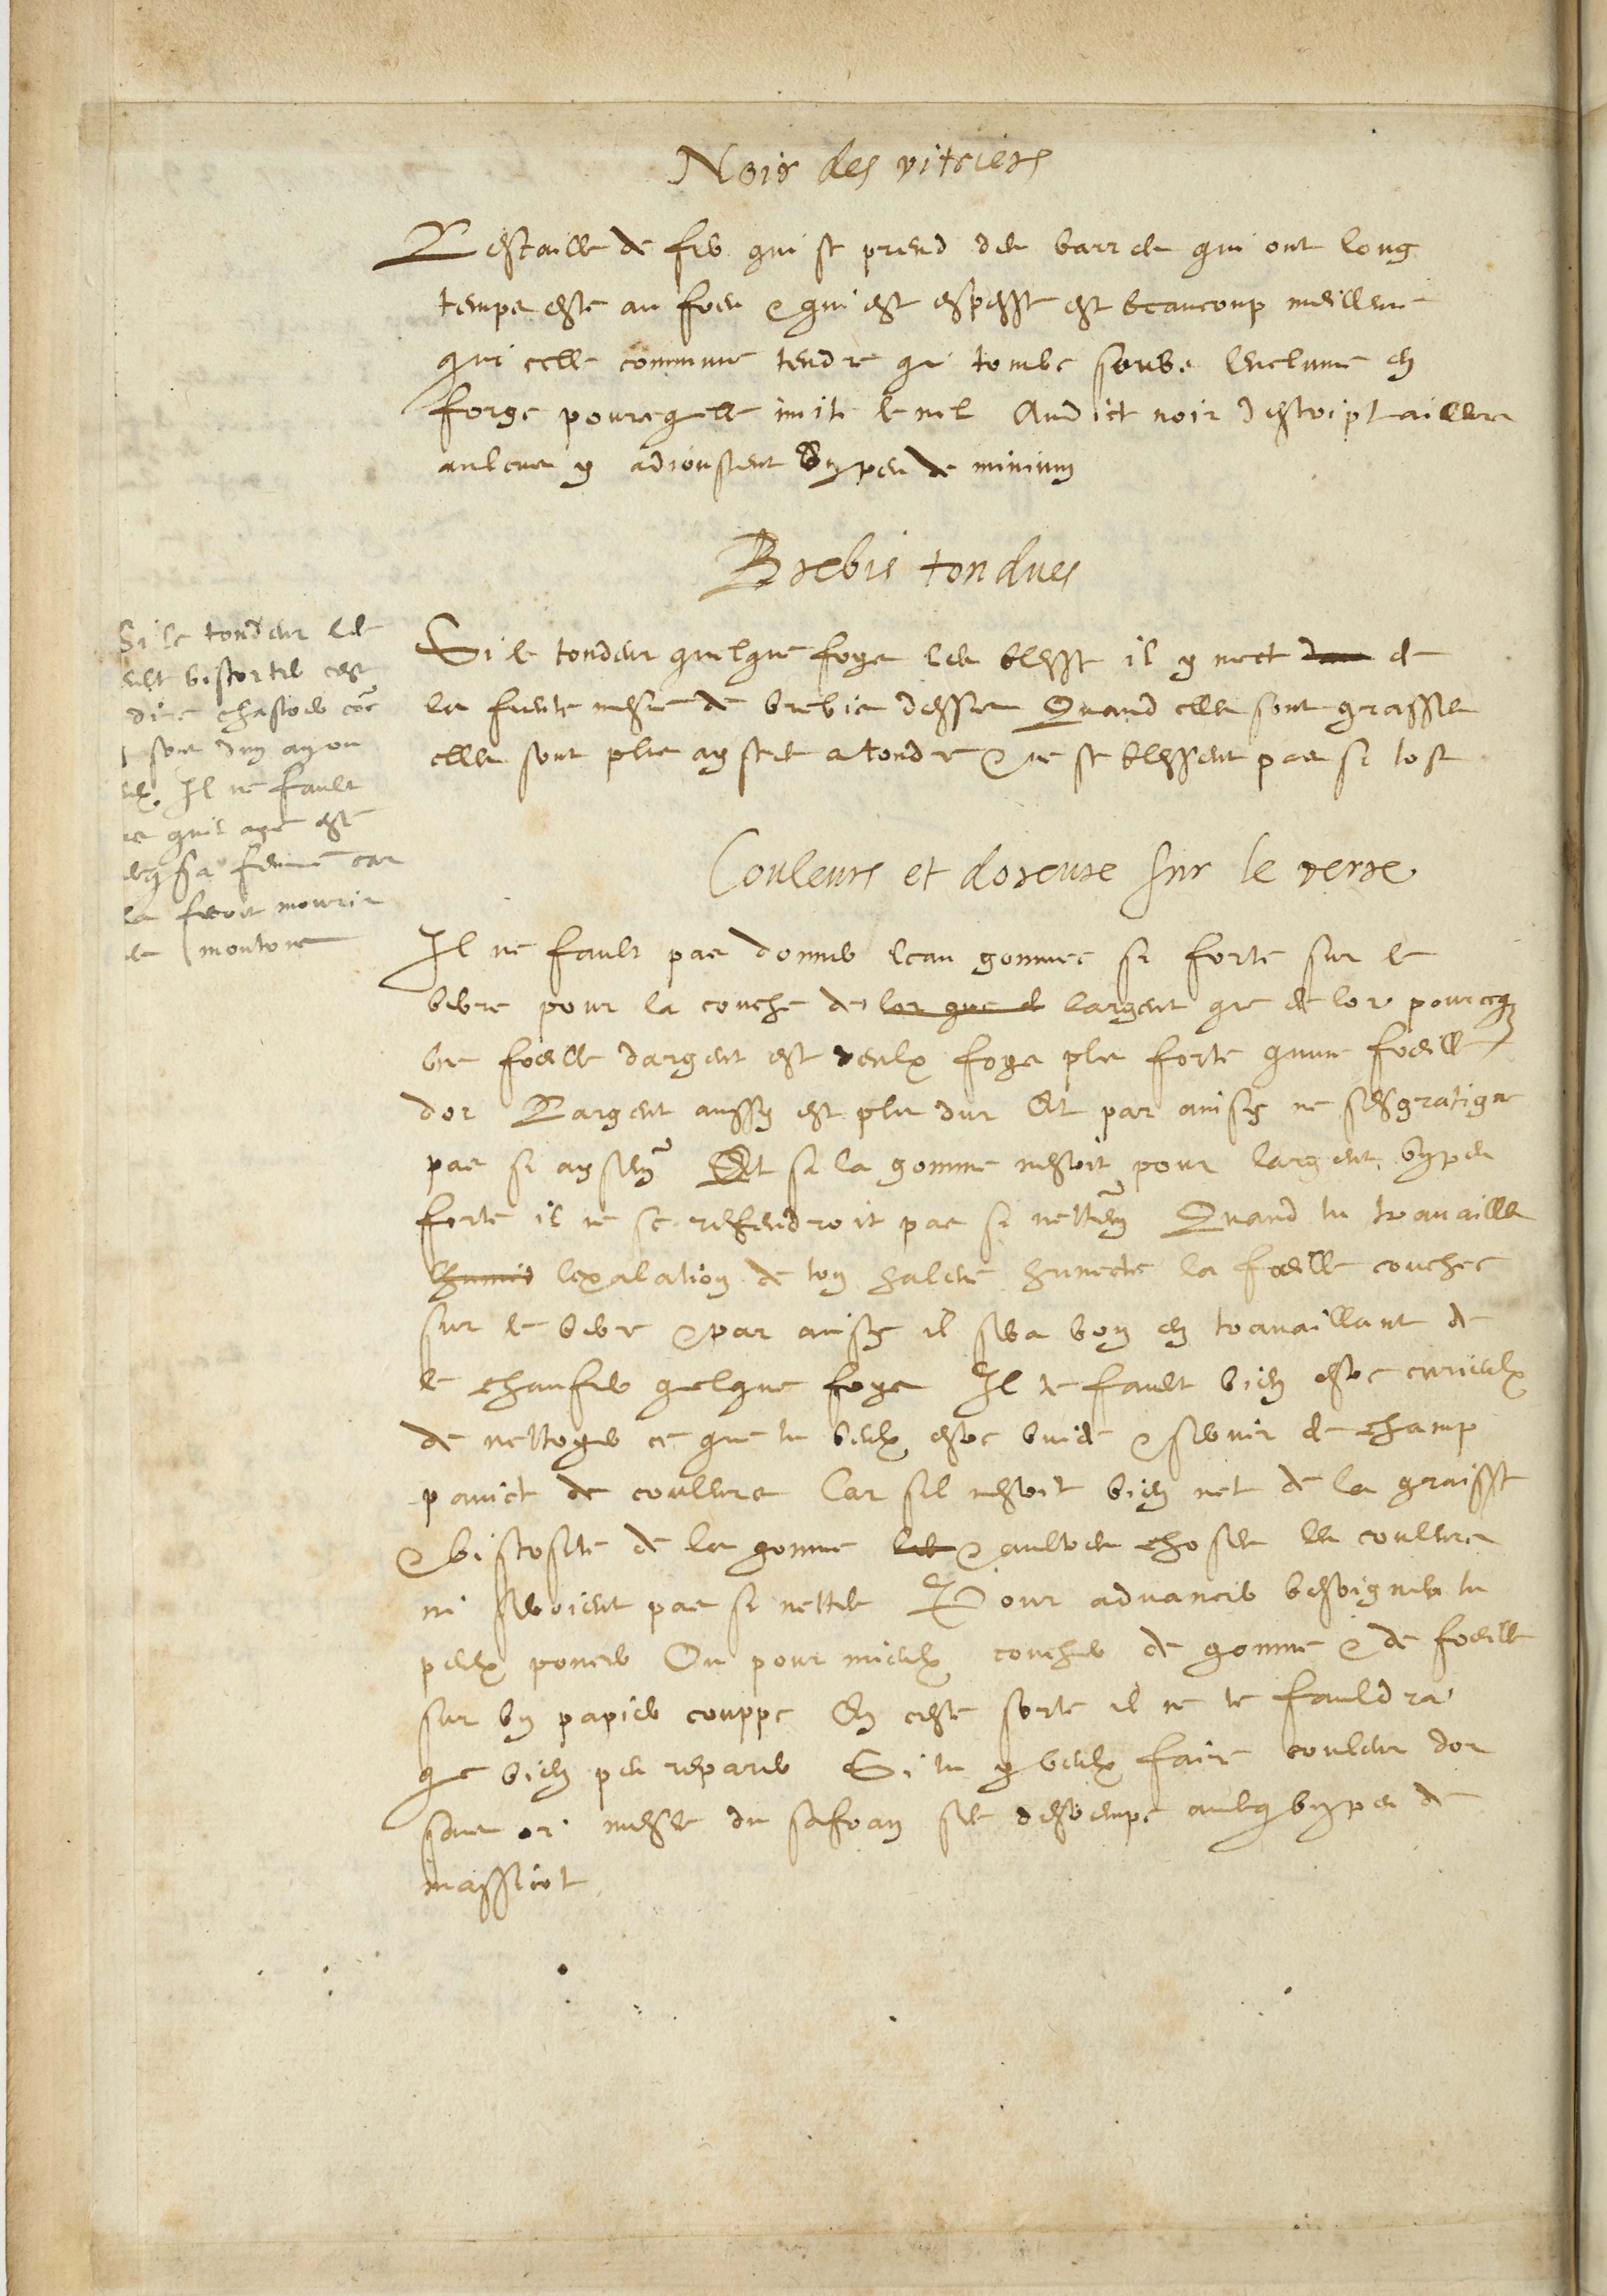 Noir des vitriers
Lescaille de fer qui se prend des barres qui ont long
temps este au foeu & qui est espesse est beaucoup meilleure
que celle commune tendre qui tombe soubs lenclume en
forge pourcequelle imite lemel Audict noir descript ailleurs
aulcuns y adjoustent un peu de minium
Brebis tondues
Si le tondeur quelque foys les blesse il y mect de
la fiente mesme de brebis dessus Quand elles sont grasses
elles sont plus aysees a tondre & ne se blessent pas si tost
Si le tondeur les
veult bistorter cest
dire chastrer coe
soir dun an ou
ulx Il ne fault
qu'il aye este
avecq sa femme car
la feroit mourir
moutons
Couleurs et doreure sur le verre
Il ne fault pas donner leau gommee si forte sur le
verre pour la couche de lor que d largent que de lor pourceq
une foeille dargent est deulx foys plus forte quune foeille
dor Largent aussy est plus dur Et par ainsy ne sesgratigne
pas si aysem Et si la gomme nestoit pour largent un peu
forte il ne se refendroit pas si nettem Quand tu travailles
lhumid lexalation de ton haleine humecte la foeille couchee
sur le verre & par ainsy il sera bon en travaillant de
le chaufer quelque foys Il te fault bien estre curieulx
de nettoyer ce que tu veulx estre vuide & servir de champ
painct de couleurs Car sil nestoit bien net de la graisse
& viscosite de la gomme les & aultres choses les couleurs
ni seroient pas si nettes Pour advancer besoigner tu
peulx poncer Ou pour mieulx coucher de gomme & de foeille
sur un papier couppe En ceste sorte il ne te fauldra
que bien peu reparer Si tu y veulx faire couleur dor
sans or mesle du safran sec destrempe avecq un peu de
massicot